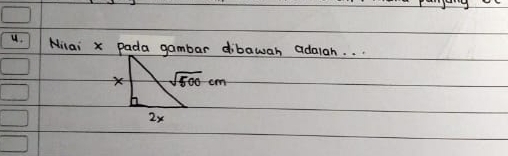 4. Nilai x pada gambar dibawah adalah...
x √500 cm
2x